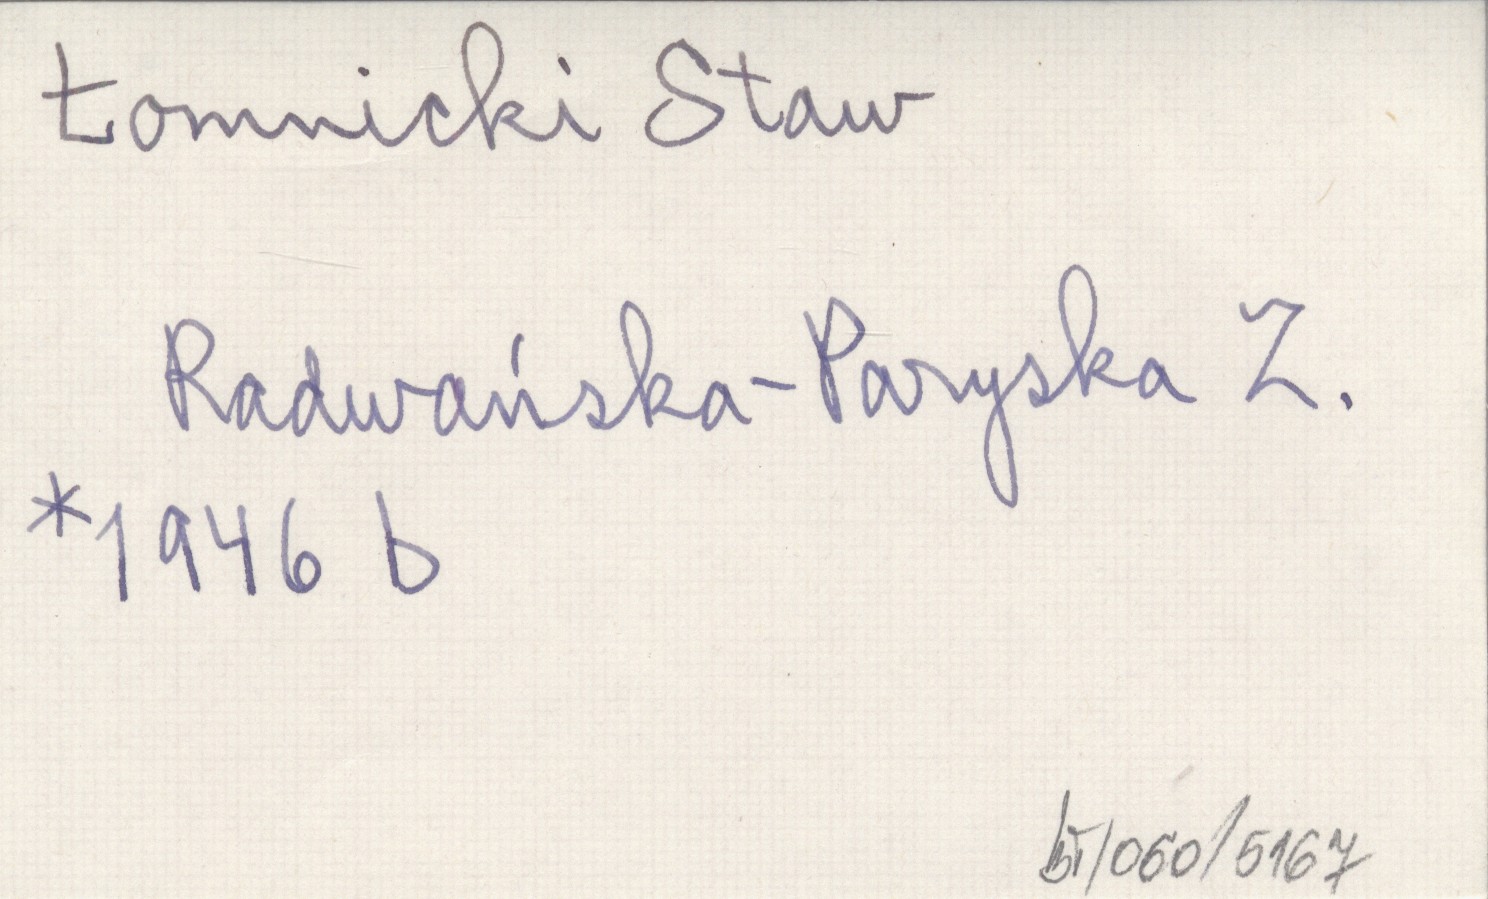 Łomnicki Staw
Radwańska-Paryska Z.
*1946 b
/060/5167